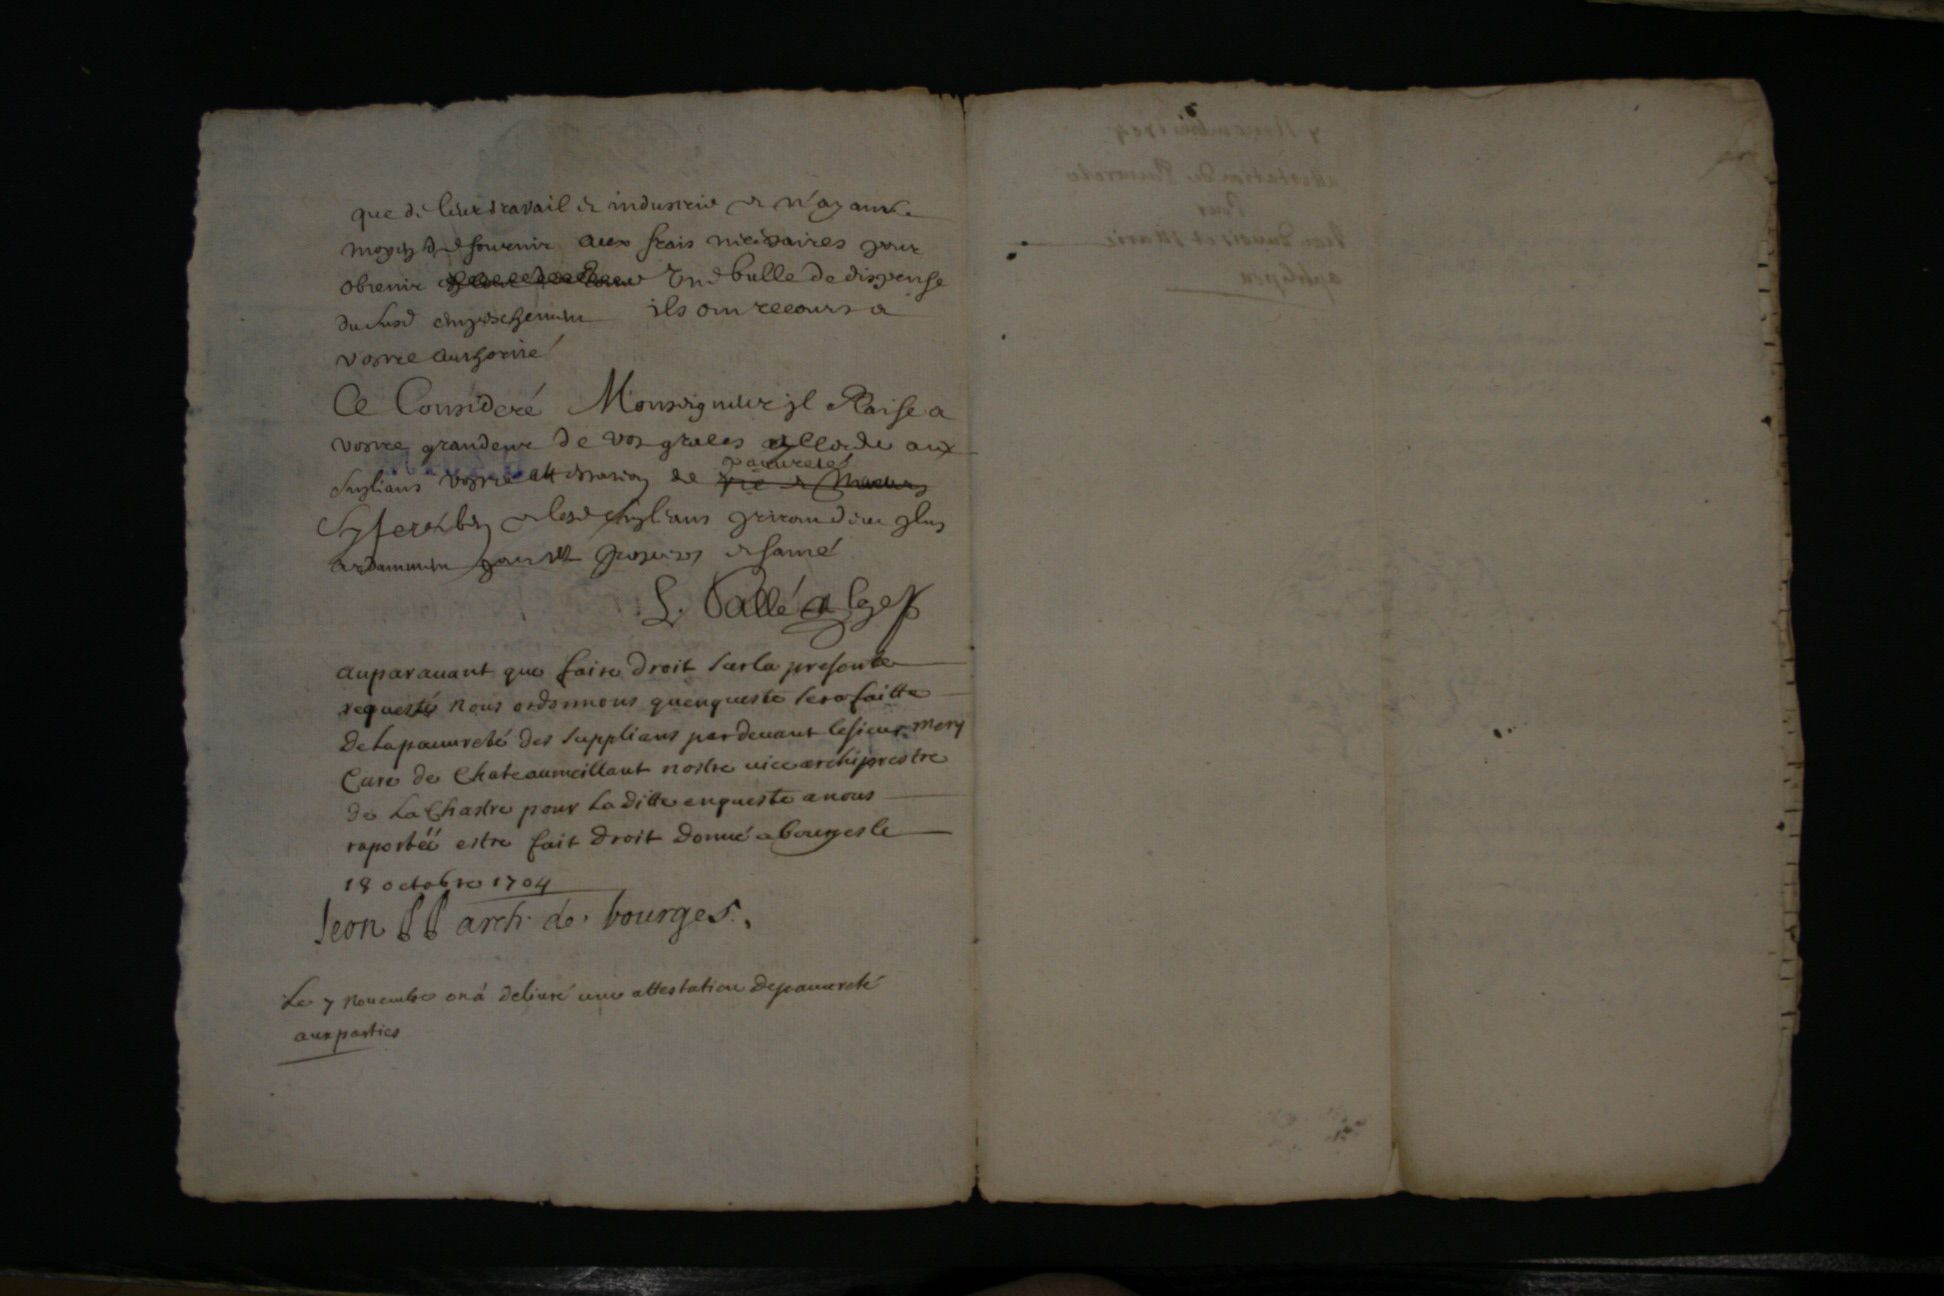 que de leur travail et industrie et n'ayant le
moyen de fournir aux frais necesaires pour
obtenir une bulle de dispense
du susd empeschement ils ont recours a
vostre authorité
Ce Consideré Monseigneur jl Plaise a
vostre grandeur de vos graces accorder aux
suplians vostre attestation de pauureté
vie et moeurs
Sy feréz bien et lesd suplians priront dieu plus
ardamment pour vt prosperité et santé
auparauant que faire droit sur la presente
requeste nous ordonnons quenqueste sera faitte
de la pauureté des supplians pardeuant le sieur mery
Curé de Chateaumeillant nostre vice archiprestre
de La Chastre pour Laditte enqueste a nous
raportéé estre fait droit donné a bourges le
18 octobre 1704
leon arch. de bourges.
Le 7 nouembre on á deliuré une attestation de pauureté
aux parties
7 Nouembre 1704
attestation de Pauureté
Pour
et Marie